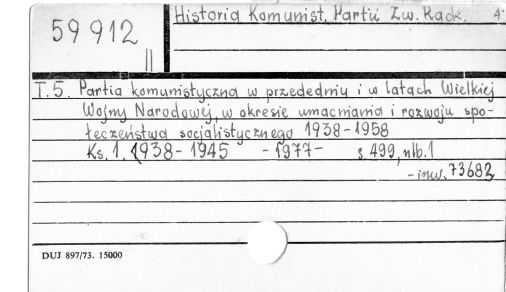 59 912
II
Historia Komunist. Partii Zw. Radz. 4
T.5. Partia komunistyczna w przededniu i w latach Wielkiej
Wojny Narodowej, w okresie umacniania i rozwoju spo-
łeczeństwa socjalistycznego 1938-1958
Ks.1. 1938-1945 -1977- s. 499, nlb.1
-inw. 73682
DUJ 897/73. 15000